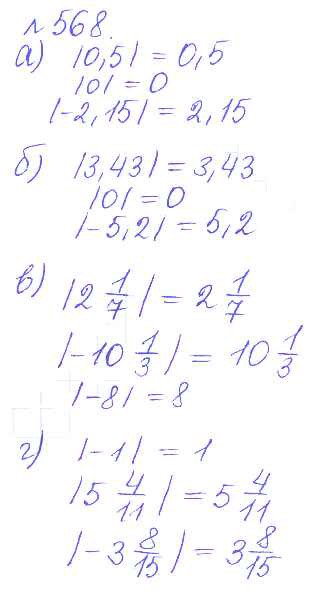 № 568.
а) |0,5| = 0,5
|0| = 0
|-2,15| = 2,15
б) |3,43| = 3,43
|0| = 0
|-5,2| = 5,2
в) |2 1/7| = 2 1/7
|-10 1/3| = 10 1/3
|-8| = 8
г) |-1| = 1
|5 4/11| = 5 4/11
|-3 8/15| = 3 8/15